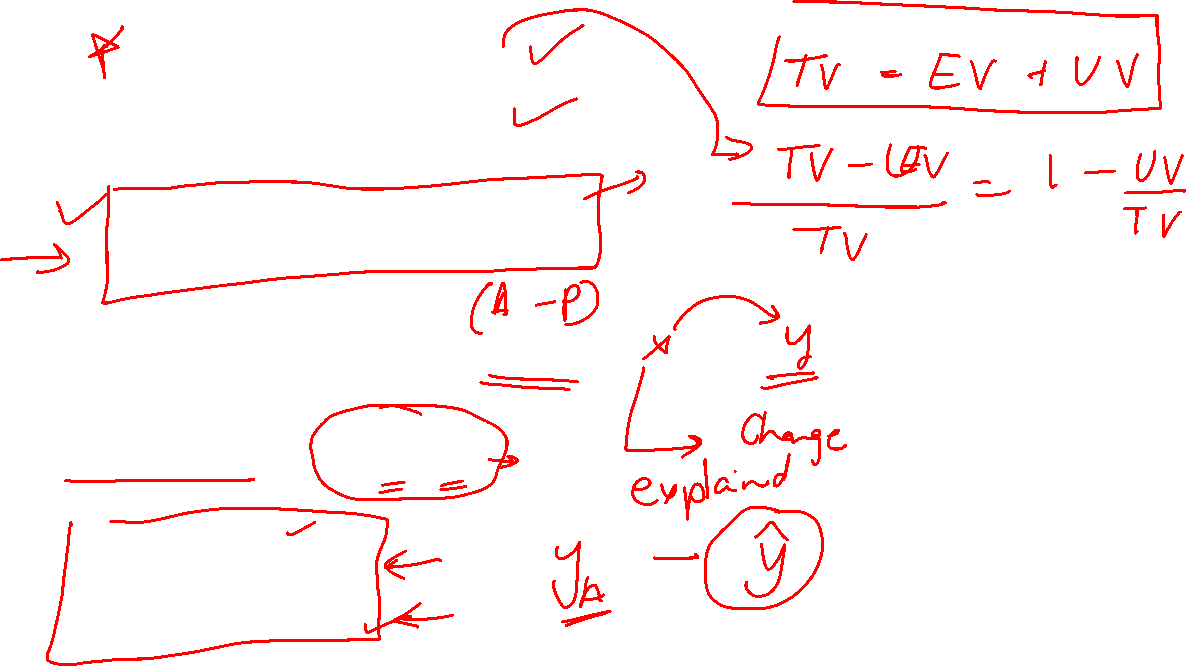 TV = EV + UV
TV - UV / TV = 1 - UV / TV
(A - P)
x y
Change
explained
y_A - ŷ